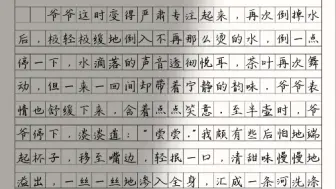 爷爷这时变得严肃专注起来，再次倒掉水
后，极轻极缓地倒入不再那么烫的水，倒一点
停一下，水滴落的声音透彻悦耳，茶叶再次舞
动，但一来一回间却带着宁静的韵味，爷爷表
情也舒缓下来，含着点点笑意，至半壶时，爷
爷停下，淡淡道：“尝尝。”我颇有些后怕地端
起杯子，移至嘴边，轻抿一口，清甜味慢慢地
溢出，一丝一丝地渗入全身，汇成一条河洗涤